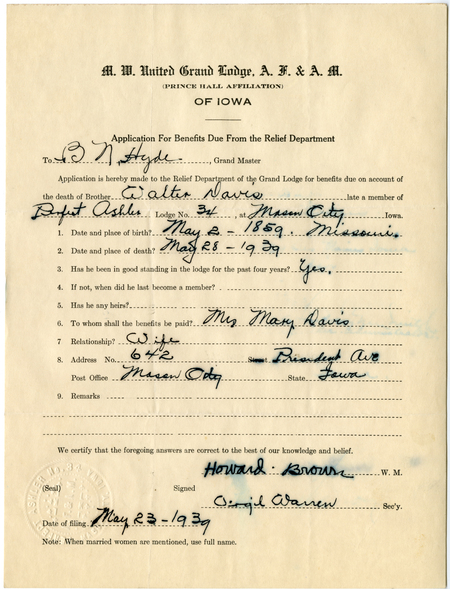 M. W. United Grand Lodge, A. F. & A. M.
(PRINCE HALL AFFILIATION)
OF IOWA
Application For Benefits Due From the Relief Department
To B N. Hyde, Grand Master
Application is hereby made to the Relief Department of the Grand Lodge for benefits due on account of
the death of Brother Walter Davis late a member of
Ashler Lodge No. 34, at Mason City Iowa.
1. Date and place of birth? May 2 - 1859. Missouri.
2. Date and place of death? May 28 - 1939
3. Has he been in good standing in the lodge for the past four years? Yes.
4. If not, when did he last become a member?
5. Has he any heirs?
6. To whom shall the benefits be paid? Mrs Mary Davis
7 Relationship? Wife
8. Address No. 642 President Ave
Post Office Mason City State Iowa
9. Remarks
We certify that the foregoing answers are correct to the best of our knowledge and belief.
Howard Brown W. M.
(Seal) Signed
Virgil Warren Sec'y.
Date of filing May 23 - 1939
Note: When married women are mentioned, use full name.